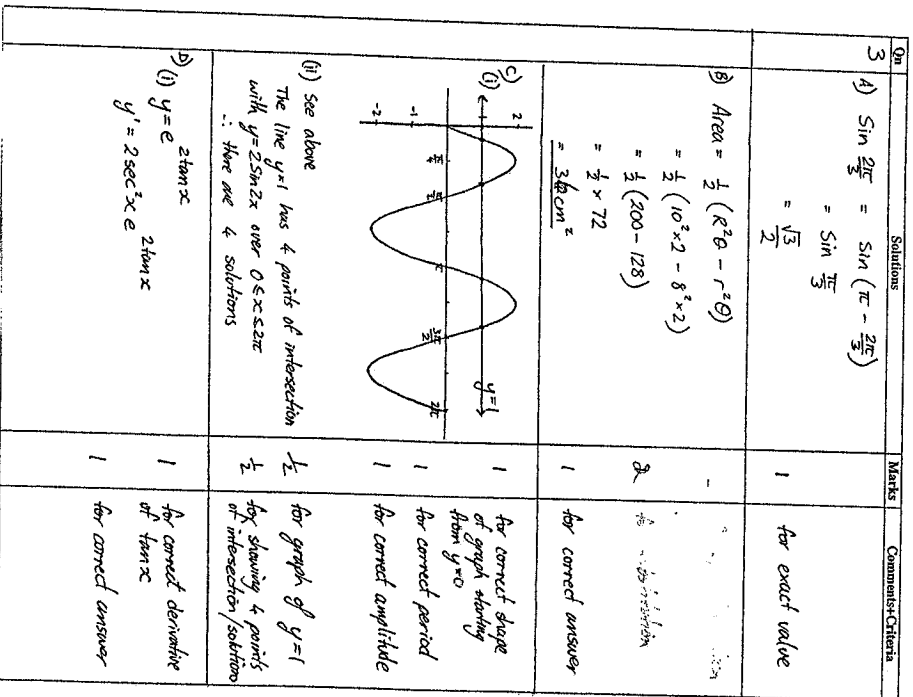 Qn Solutions Marks Comments+Criteria
3 A) Sin 2π/3 = Sin (π - 2π/3)
= Sin π/3
= √3/2 1 for exact value
B) Area = 1/2 (R²θ - r²θ)
= 1/2 (10²×2 - 8²×2)
= 1/2 (200-128) 2
= 1/2 × 72
= 36cm² 1 for correct answer
C)
(i)
2
1
-1
-2
π/4 π/2 π 3π/2 2π
y=1
1 for correct shape
of graph starting
from y=0
1 for correct period
1 for correct amplitude
(ii) see above
The line y=1 has 4 points of intersection
with y=2Sin2x over 0≤x≤2π
∴ there are 4 solutions
1/2 for graph of y=1
1/2 for showing 4 points
of intersection/solutions
D) (i) y=e^2tanx
y' = 2sec²x e^2tanx
1 for correct derivative
of tanx
1 for correct answer